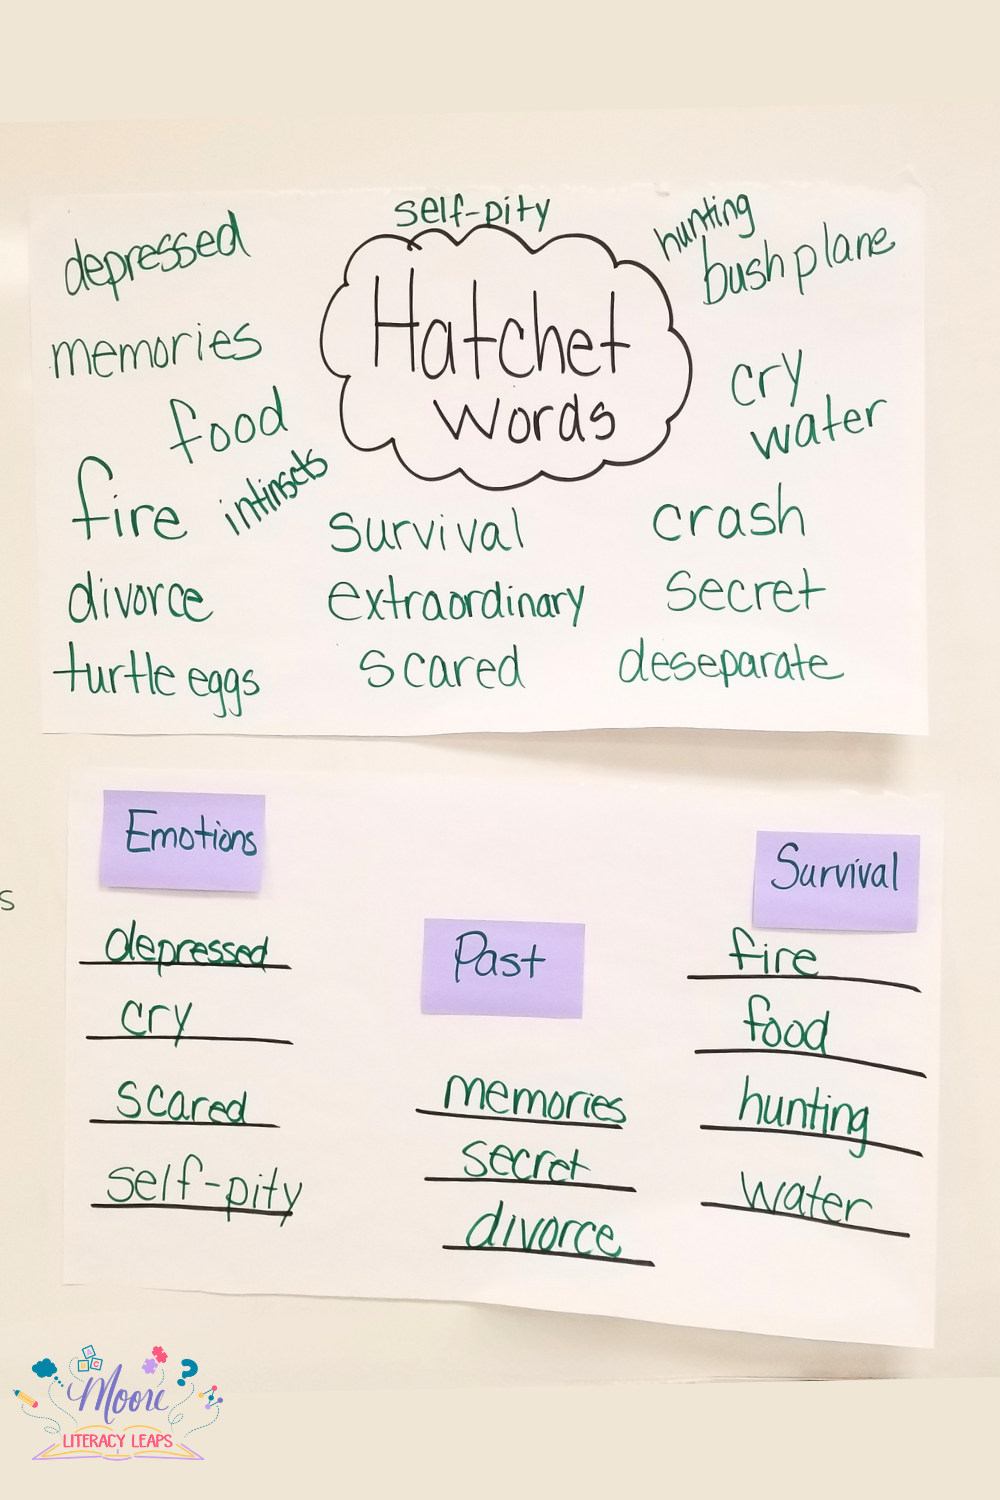 self-pity
hunting
depressed
bush plane
Hatchet
Words
memories
cry
food
water
fire
intinsets
survival
crash
divorce
extraordinary
secret
turtle eggs
scared
deseparate
Emotions
depressed
cry
scared
self-pity
Past
memories
secret
divorce
Survival
fire
food
hunting
water
s
A
C
Moore
LITERACY LEAPS